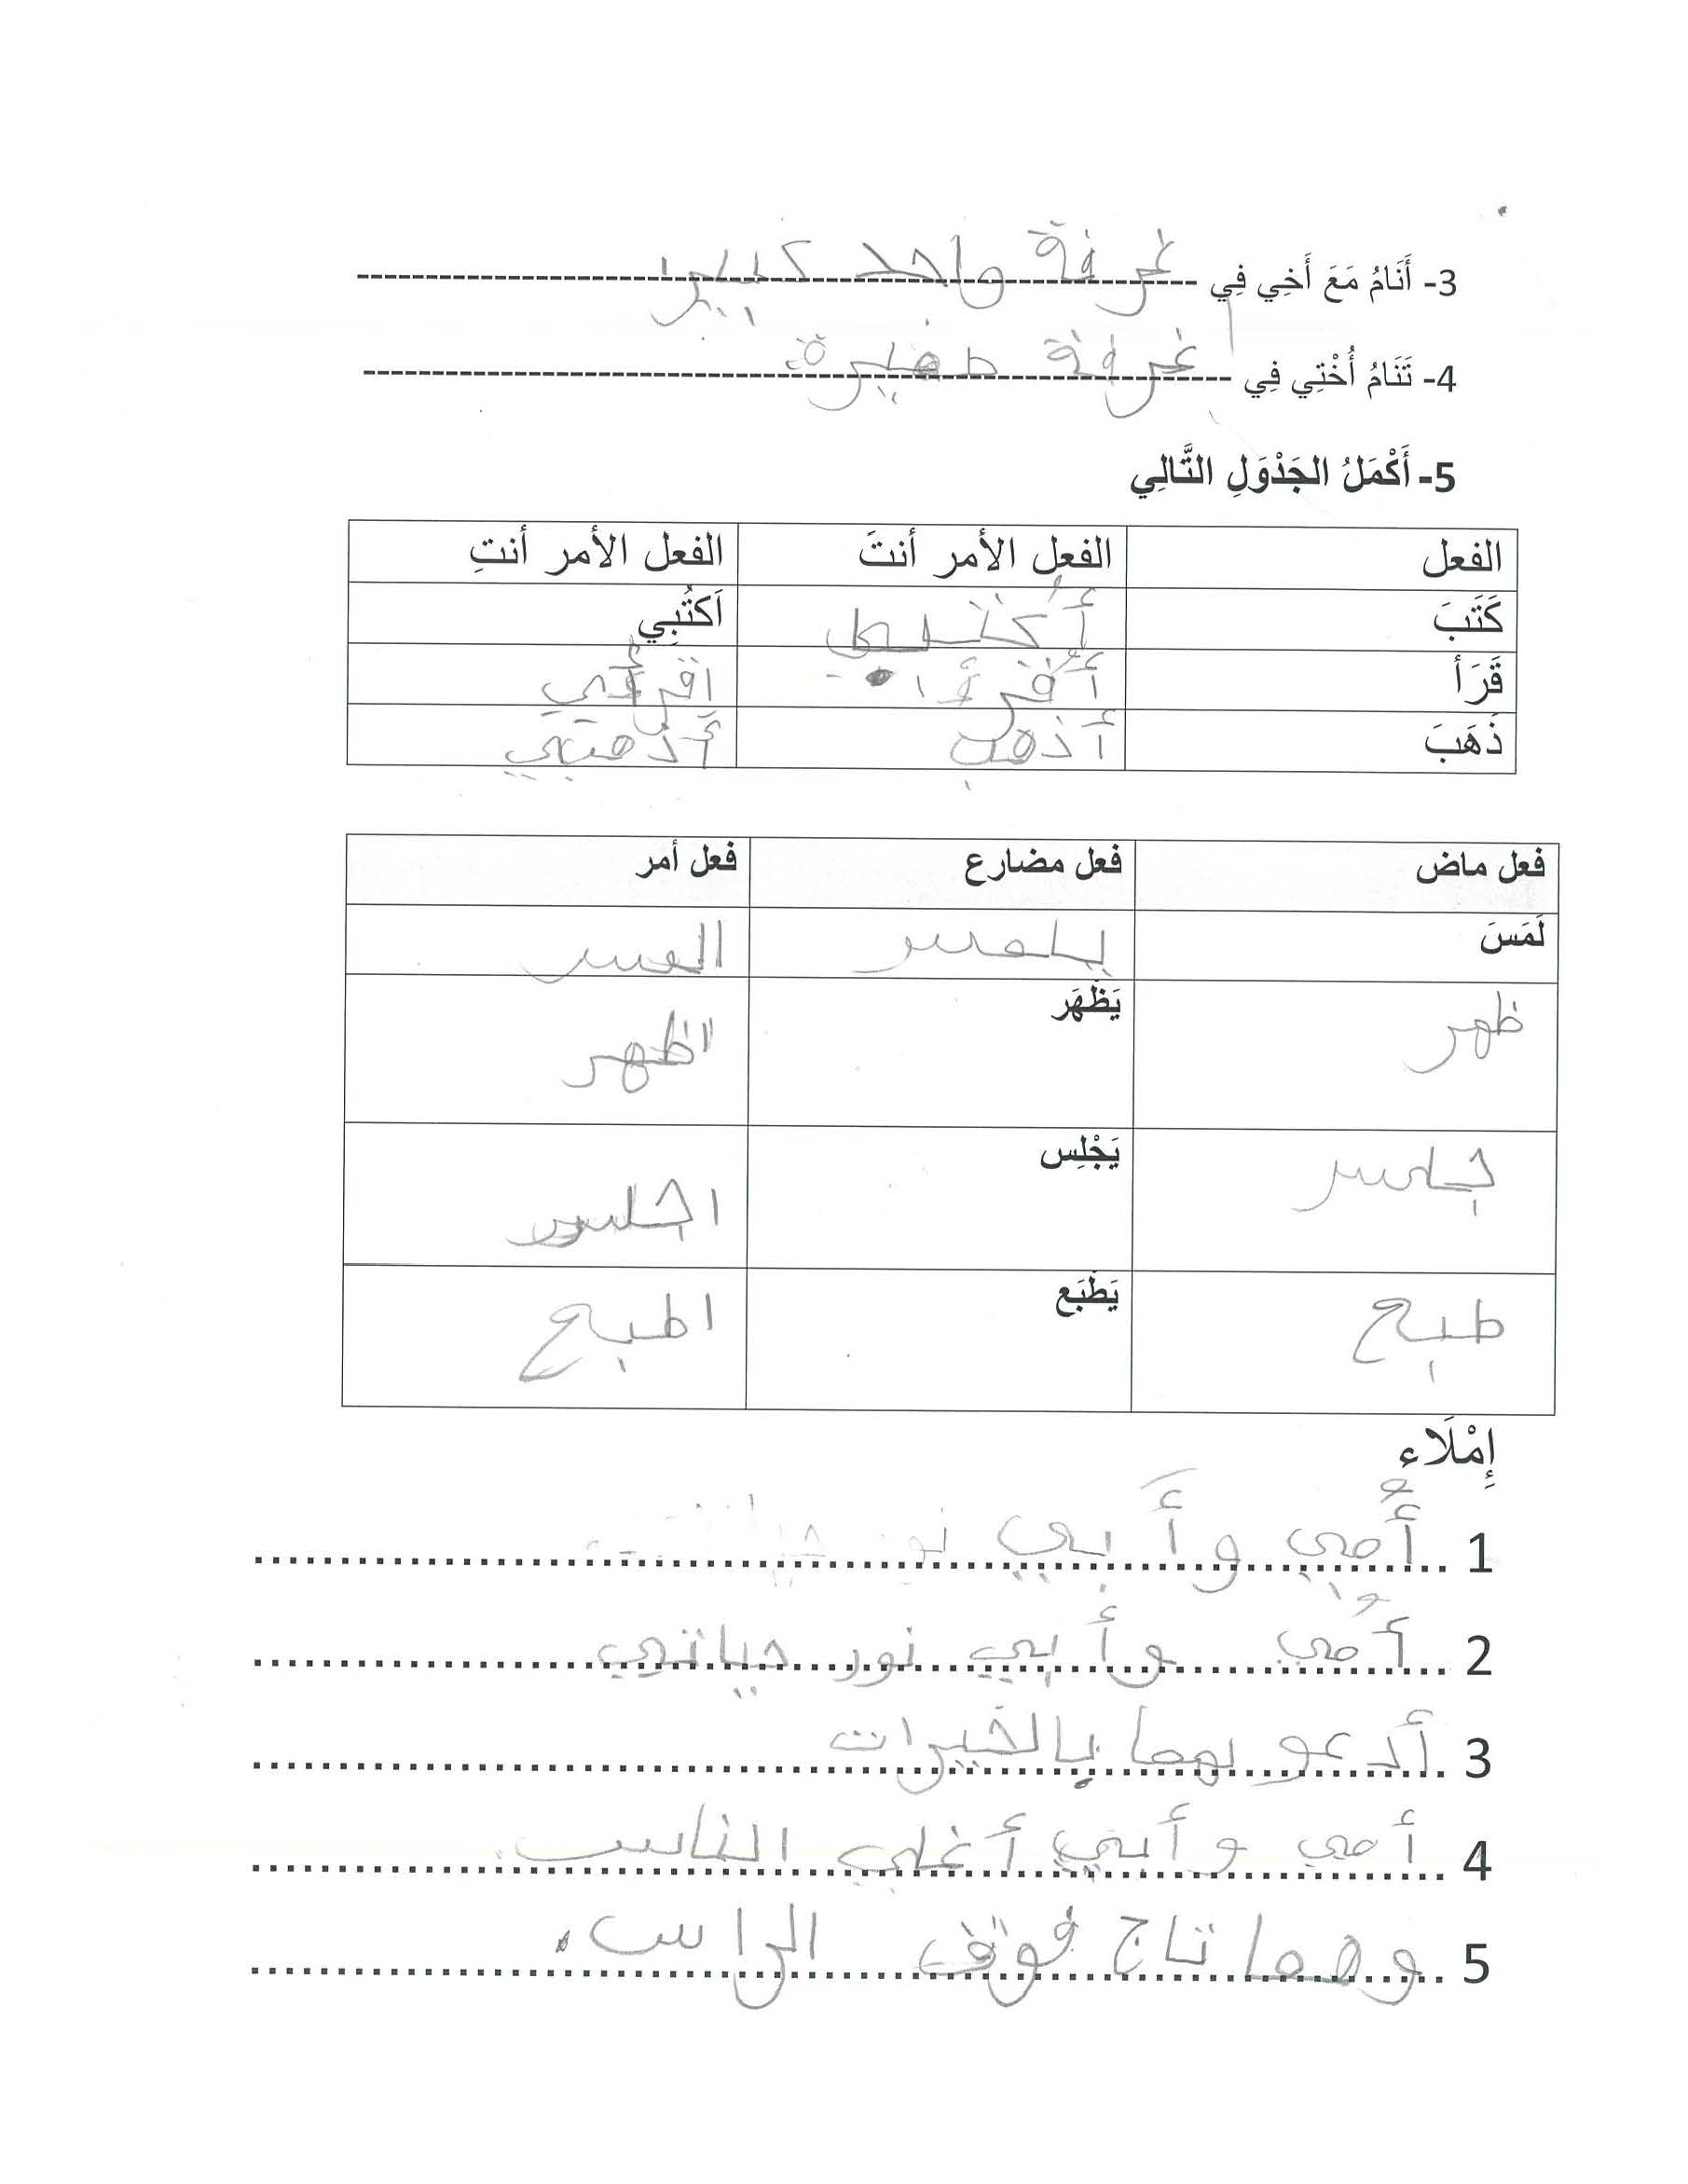 3- أَنَامُ مَعَ أَخِي فِي غرفة واحد كبير
4- تَنَامُ أُخْتِي فِي غرفة صغيرة
5- أَكْمَلُ الجَدْوَلِ التَّالِي
الفعل الفعل الأمر أنتَ الفعل الأمر أنتِ
كَتَبَ اَكتُبِي
قَرَأ
ذَهَبَ أذهب أذهبي
فعل ماض فعل مضارع فعل أمر
لَمَسَ يلمس المس
ظهر يَظْهَر اظهر
جلس يَجْلِس اجلس
طبع يَطْبَع اطبع
إِمْلَاء
1 أُمّي وأَبي نور
2 أُمّي وأبي نور حياتي
3 أدعو لهما بالخيرات
4 أمي وأبي أغلى الناس.
5 وهما تاج فوق الراس.